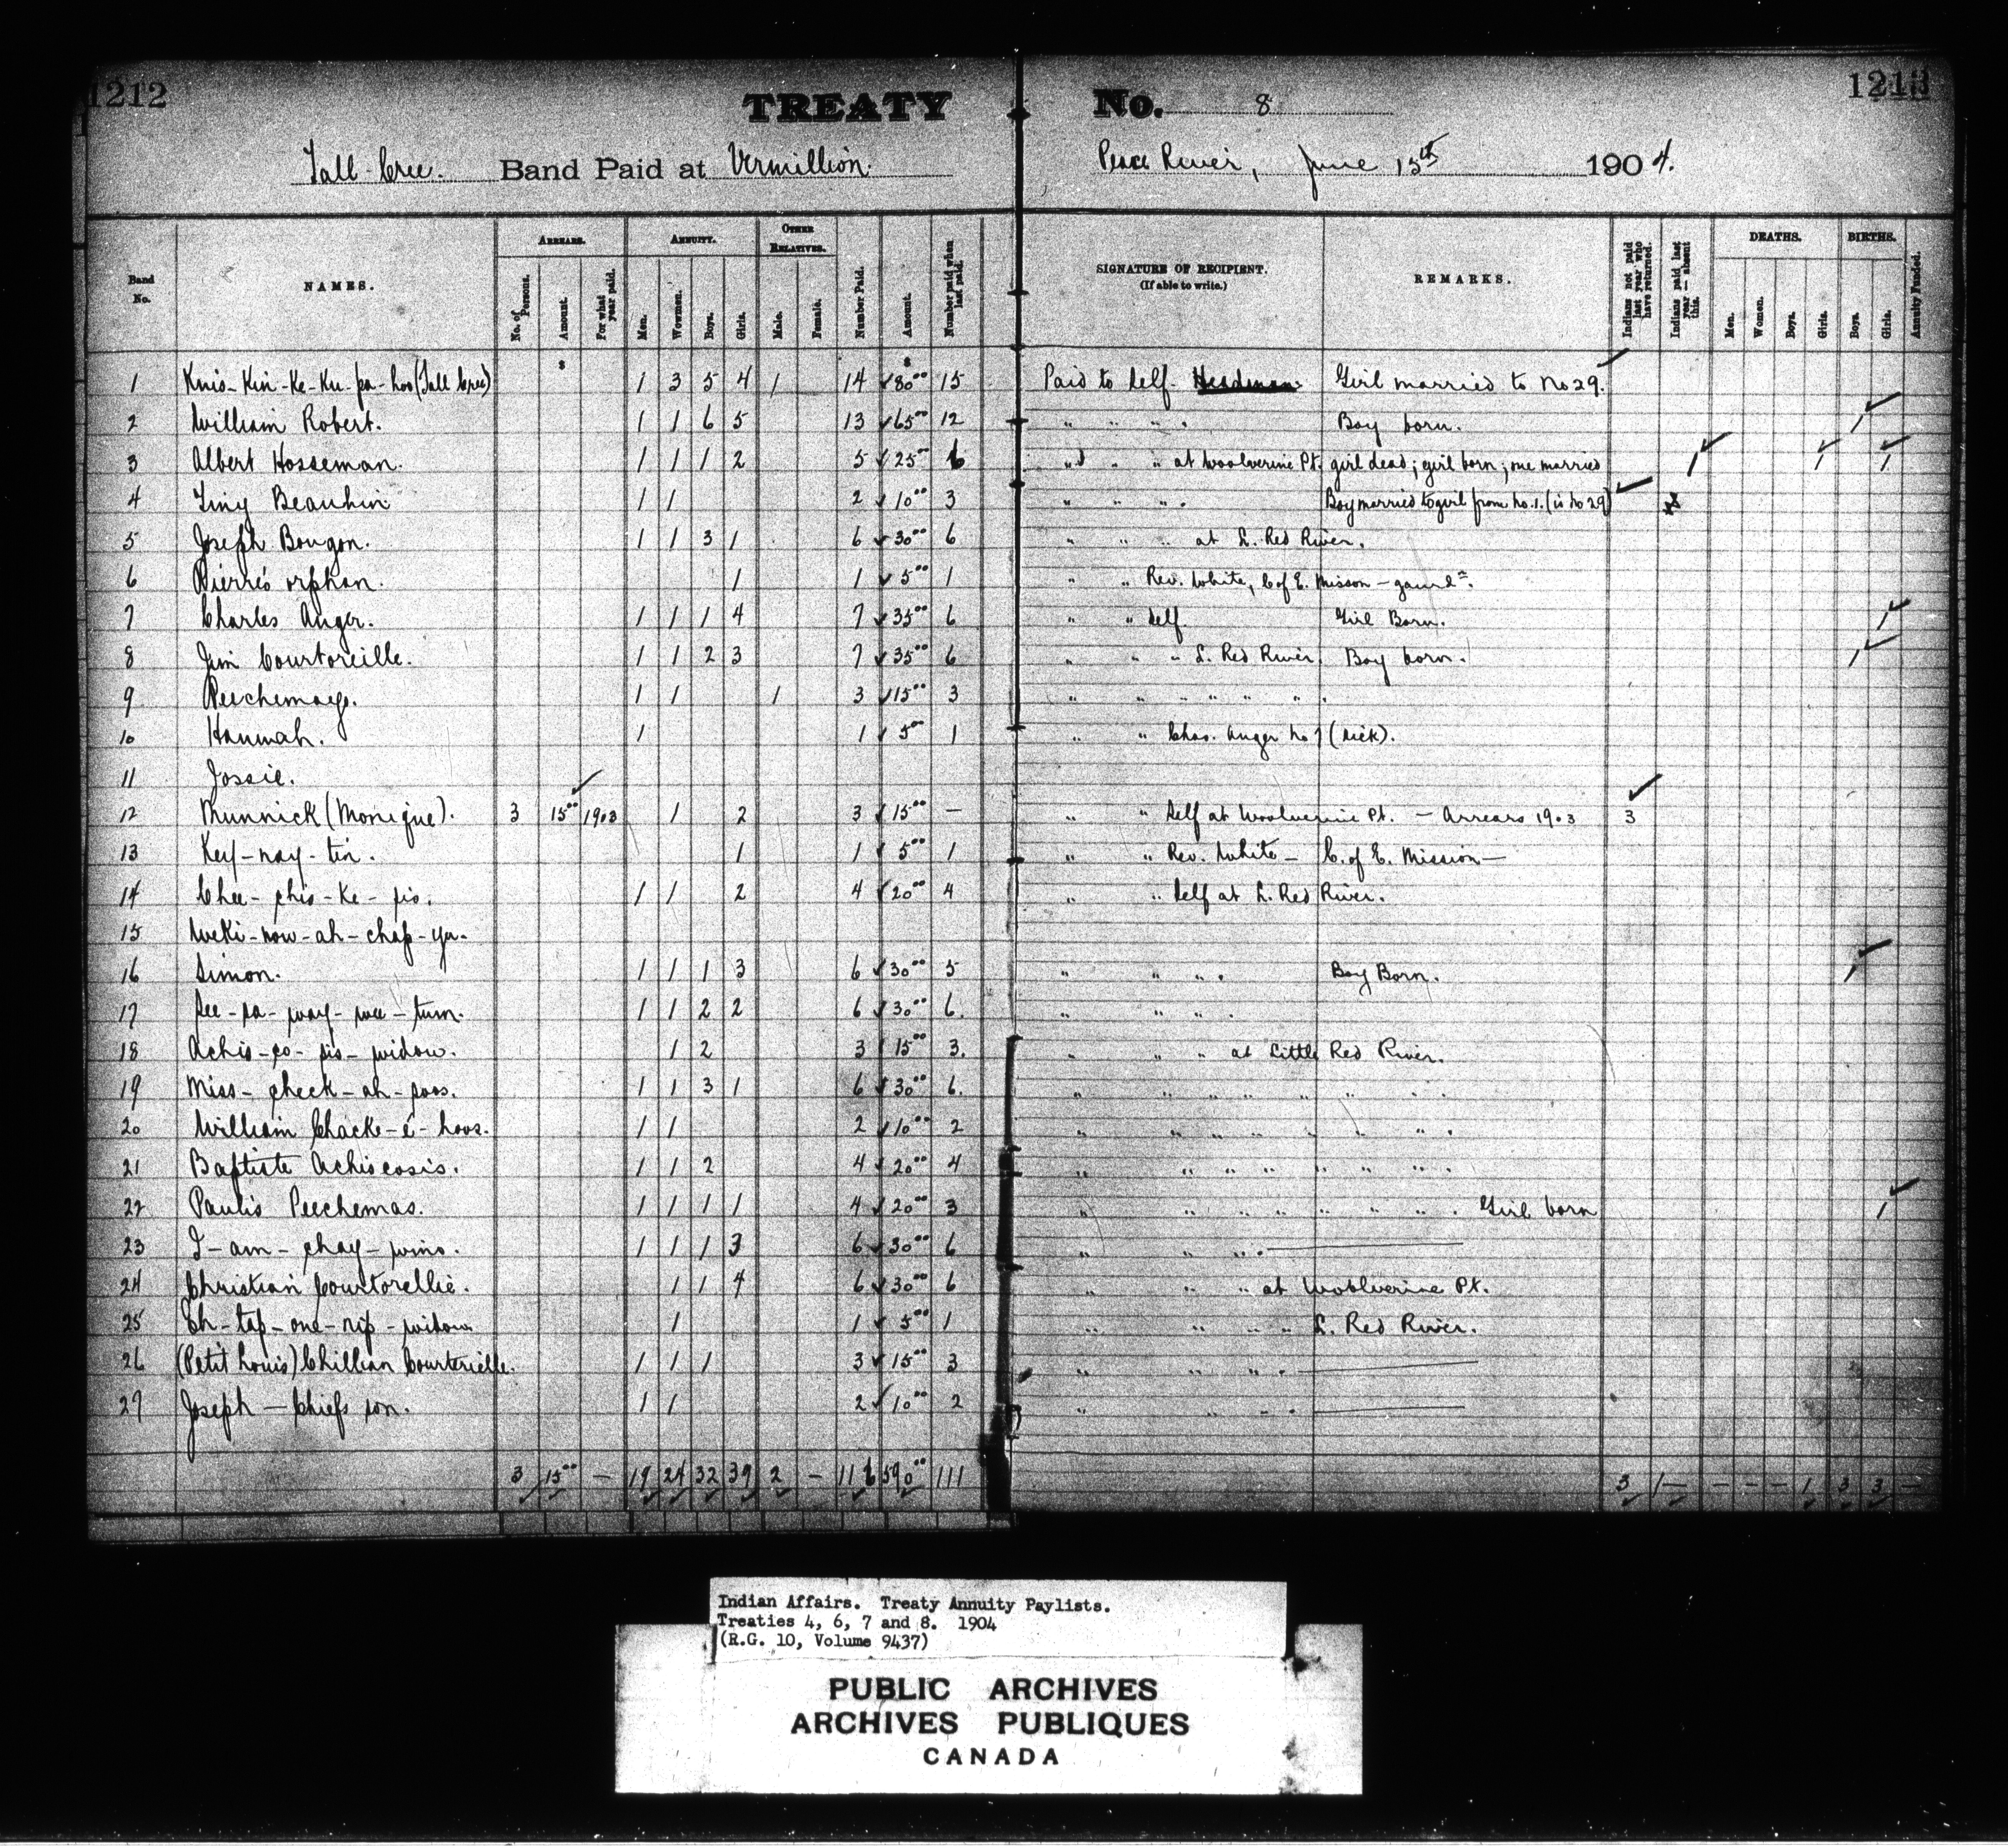 1212
1213
TREATY No. 8
Tall Cree. Band Paid at Vermillion. Peace River, June 15th 1904.
Band No.
NAMES.
ARREARS.
No. of Persons.
Amount.
For what year paid.
ANNUITY.
Men.
Women.
Boys.
Girls.
OTHER RELATIVES.
Male.
Female.
Number Paid.
Amount.
Number paid when last paid.
SIGNATURE OF RECIPIENT.
(If able to write.)
REMARKS.
Indians not paid last year who have returned.
Indians paid last year — absent this.
DEATHS.
Men.
Women.
Boys.
Girls.
BIRTHS.
Boys.
Girls.
Annuity Funded.
$ $
1 Knis-Kin-Ke-Ku-pa-hoo (Tall Cree) 1 3 5 4 1 14 80 00 15 Paid to Self - Headman Girl married to No 29.
2 William Robert. 1 1 6 5 13 65 00 12 " " " . Boy born. 1
3 Albert Hosseman. 1 1 1 2 5 25 00 6 " " " at Woolverine Pt. girl dead; girl born; one married 1 1 1
4 Tiny Beauhin 1 1 2 10 00 3 " " " . Boy married to girl from No. 1. (is No 29)
5 Joseph Bougon. 1 1 3 1 6 30 00 6 " " " at L. Red River.
6 Pierre's orphan. 1 1 5 00 1 " " Rev. White, C of E. Misson -
7 Charles Anger. 1 1 1 4 7 35 00 6 " " Self Girl Born. 1
8 Jim Courtoreille. 1 1 2 3 7 35 00 6 " " " L. Red River. Boy born. 1
9 1 1 1 3 15 00 3 " " " " " " .
10 Hannah. 1 1 5 00 1 " " Chas. Anger No 7 (sick).
11 Jossie.
12 Munnick (Monique). 3 15 00 1903 1 2 3 15 00 — " " Self at Woolverine Pt. — Arrears 1903 3
13 Key-nay-tin. 1 1 5 00 1 " " Rev. White — C. of E. Mission —
14 Chee-chis-ke-sis. 1 1 2 4 20 00 4 " " Self at L. Red River.
15 Weki-now-ah-chap-yu-
16 Simon. 1 1 1 3 6 30 00 5 " " " . Boy Born. 1
17 See-pa-way-wee-tum. 1 1 2 2 6 30 00 6. " " " .
18 Achis-co-sis-widow. 1 2 3 15 00 3. " " " at Little Red River.
19 Miss-check-ah-poos. 1 1 3 1 6 30 00 6. " " " " " " " "
20 William Chacke-e-hoos. 1 1 2 10 00 2 " " " " " " " .
21 Baptiste Achiscosis. 1 1 2 4 20 00 4 " " " " " " " .
22 Paulis Peechemas. 1 1 1 1 4 20 00 3 " " " " " " " " . Girl born 1
23 I-am-chay-wins. 1 1 1 3 6 30 00 6 " " " .
24 Christian Courtorellie. 1 1 4 6 30 00 6 " " " at Woolverine Pt.
25 Eh-tap-one-nip-widow 1 1 5 00 1 " " " " L. Red River.
26 (Petit Louis) Chillian Courterielle. 1 1 1 3 15 00 3 " " " " .
27 Joseph — Chiefs son. 1 1 2 10 00 2 " " " " .
3 15 00 — 19 24 32 39 2 — 116 590 00 111 3 1 — — — — 1 3 3 —
Indian Affairs. Treaty Annuity Paylists.
Treaties 4, 6, 7 and 8. 1904
(R.G. 10, Volume 9437)
PUBLIC ARCHIVES
ARCHIVES PUBLIQUES
CANADA